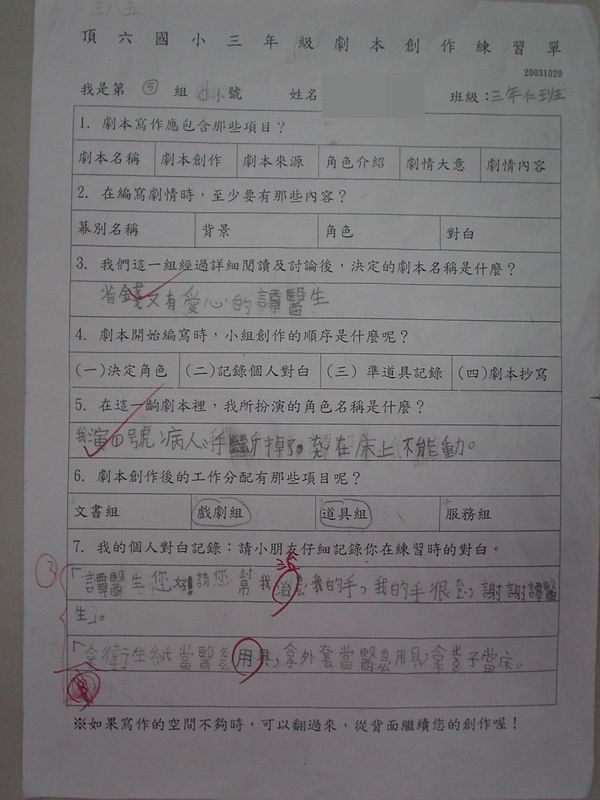 三八五
頂六國小三年級劇本創作練習單
20031020
我是第 ⑤ 組 號 姓名 班級：三年仁班
1. 劇本寫作應包含那些項目？
劇本名稱 劇本創作 劇本來源 角色介紹 劇情大意 劇情內容
2. 在編寫劇情時，至少要有那些內容？
幕別名稱 背景 角色 對白
3. 我們這一組經過詳細閱讀及討論後，決定的劇本名稱是什麼？
省錢又有愛心的譚醫生
4. 劇本開始編寫時，小組創作的順序是什麼呢？
(一)決定角色 (二)記錄個人對白 (三) 準道具記錄 (四)劇本抄寫
5. 在這一齣劇本裡，我所扮演的角色名稱是什麼？
我演四號病人，手斷掉了。躺在床上不能動。
6. 劇本創作後的工作分配有那些項目呢？
文書組 戲劇組 道具組 服務組
7. 我的個人對白記錄：請小朋友仔細記錄你在練習時的對白。
③
「譚醫生您好！請您幫我治我的手，我的手很，謝謝譚醫
生」。
「拿衛生紙當醫用具，拿外套當醫用具，拿子當床。
※如果寫作的空間不夠時，可以翻過來，從背面繼續您的創作喔！